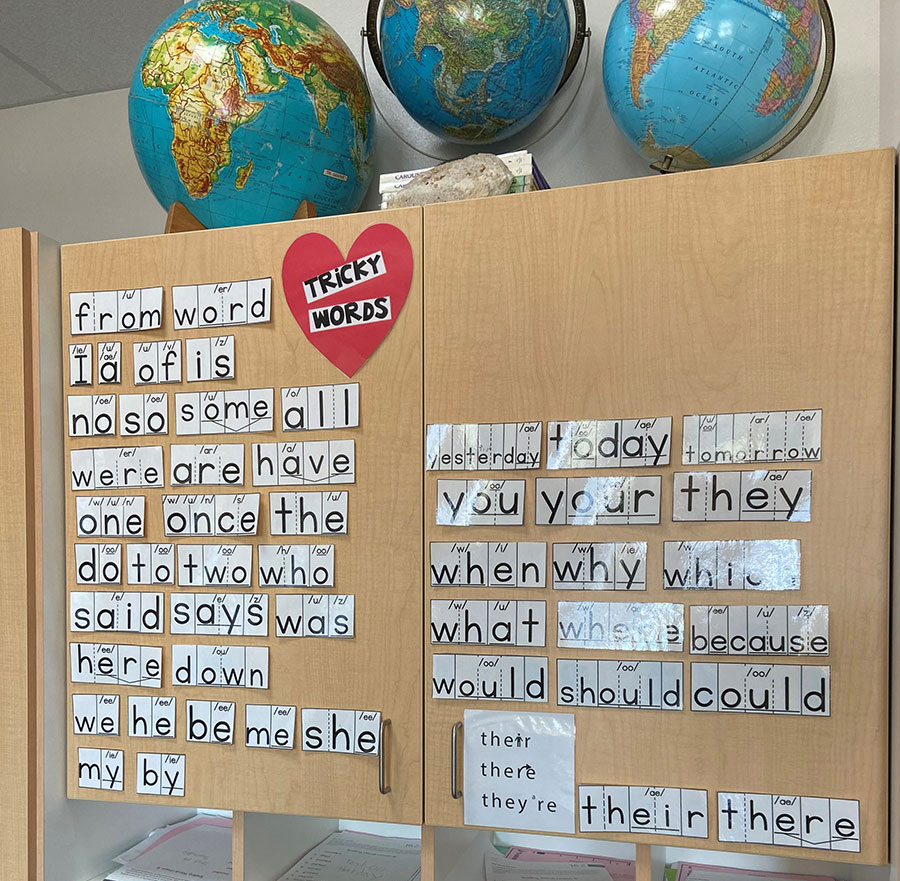 SOUTH
ATLANTIC
OCEAN
TRICKY
WORDS
/u/ /er/
from word
/ie/ /u/ /ae/ /u/ /v/ /z/
I a of is
/oe/ /oe/ /u/ /o/
no so some all
/er/ /ar/ /a/
were are have
/w/ /u/ /n/ /w/ /u/ /n/ /s/ /u/
one once the
/oo/ /oo/ /oo/ /h/ /oo/
do to two who
/e/ /e/ /z/ /u/ /z/
said says was
/ee/ /ou/
here down
/ee/ /ee/ /ee/ /ee/ /ee/
we he be me she
/ie/ /ie/
my by
/ae/ /ae/ /ar/ /oe/
yesterday today tomorrow
/oo/ /ae/
you your they
/w/ /i/ /w/ /ie/ /w/
when why
/w/ /u/ /ee/ /u/ /z/
what because
/oo/ /oo/ /oo/
would should could
their
there
they're
/ae/ /ae/
their there